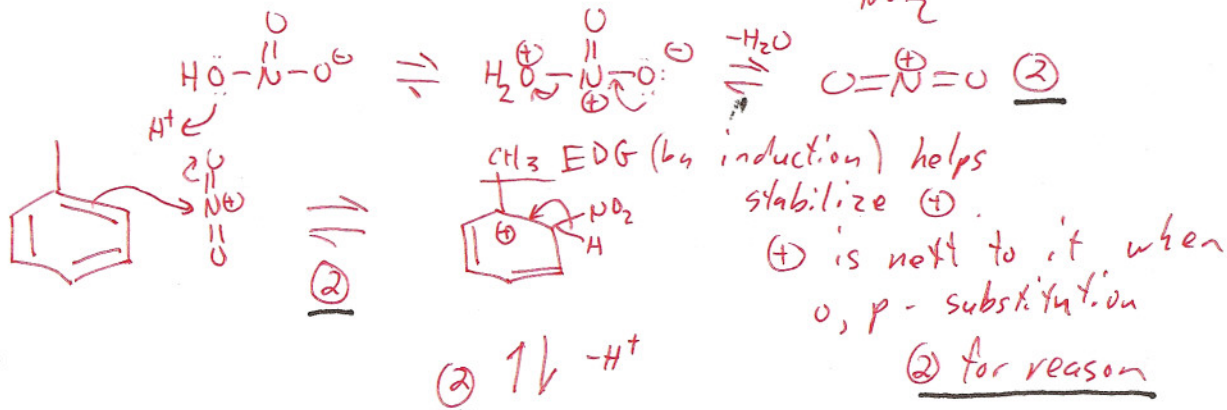 NO2
O O
HO-N-O⊖ ⇌ H2O⊕-N⊕-O:⊖ -H2O ⇌ O=N⊕=O ②
H+
CH3 EDG (by induction) helps
stabilize ⊕.
O=N⊕=O ⇌ ⊕ NO2 H
②
⊕ is next to it when
o, p - substitution
② for reason
② ⇅ -H+